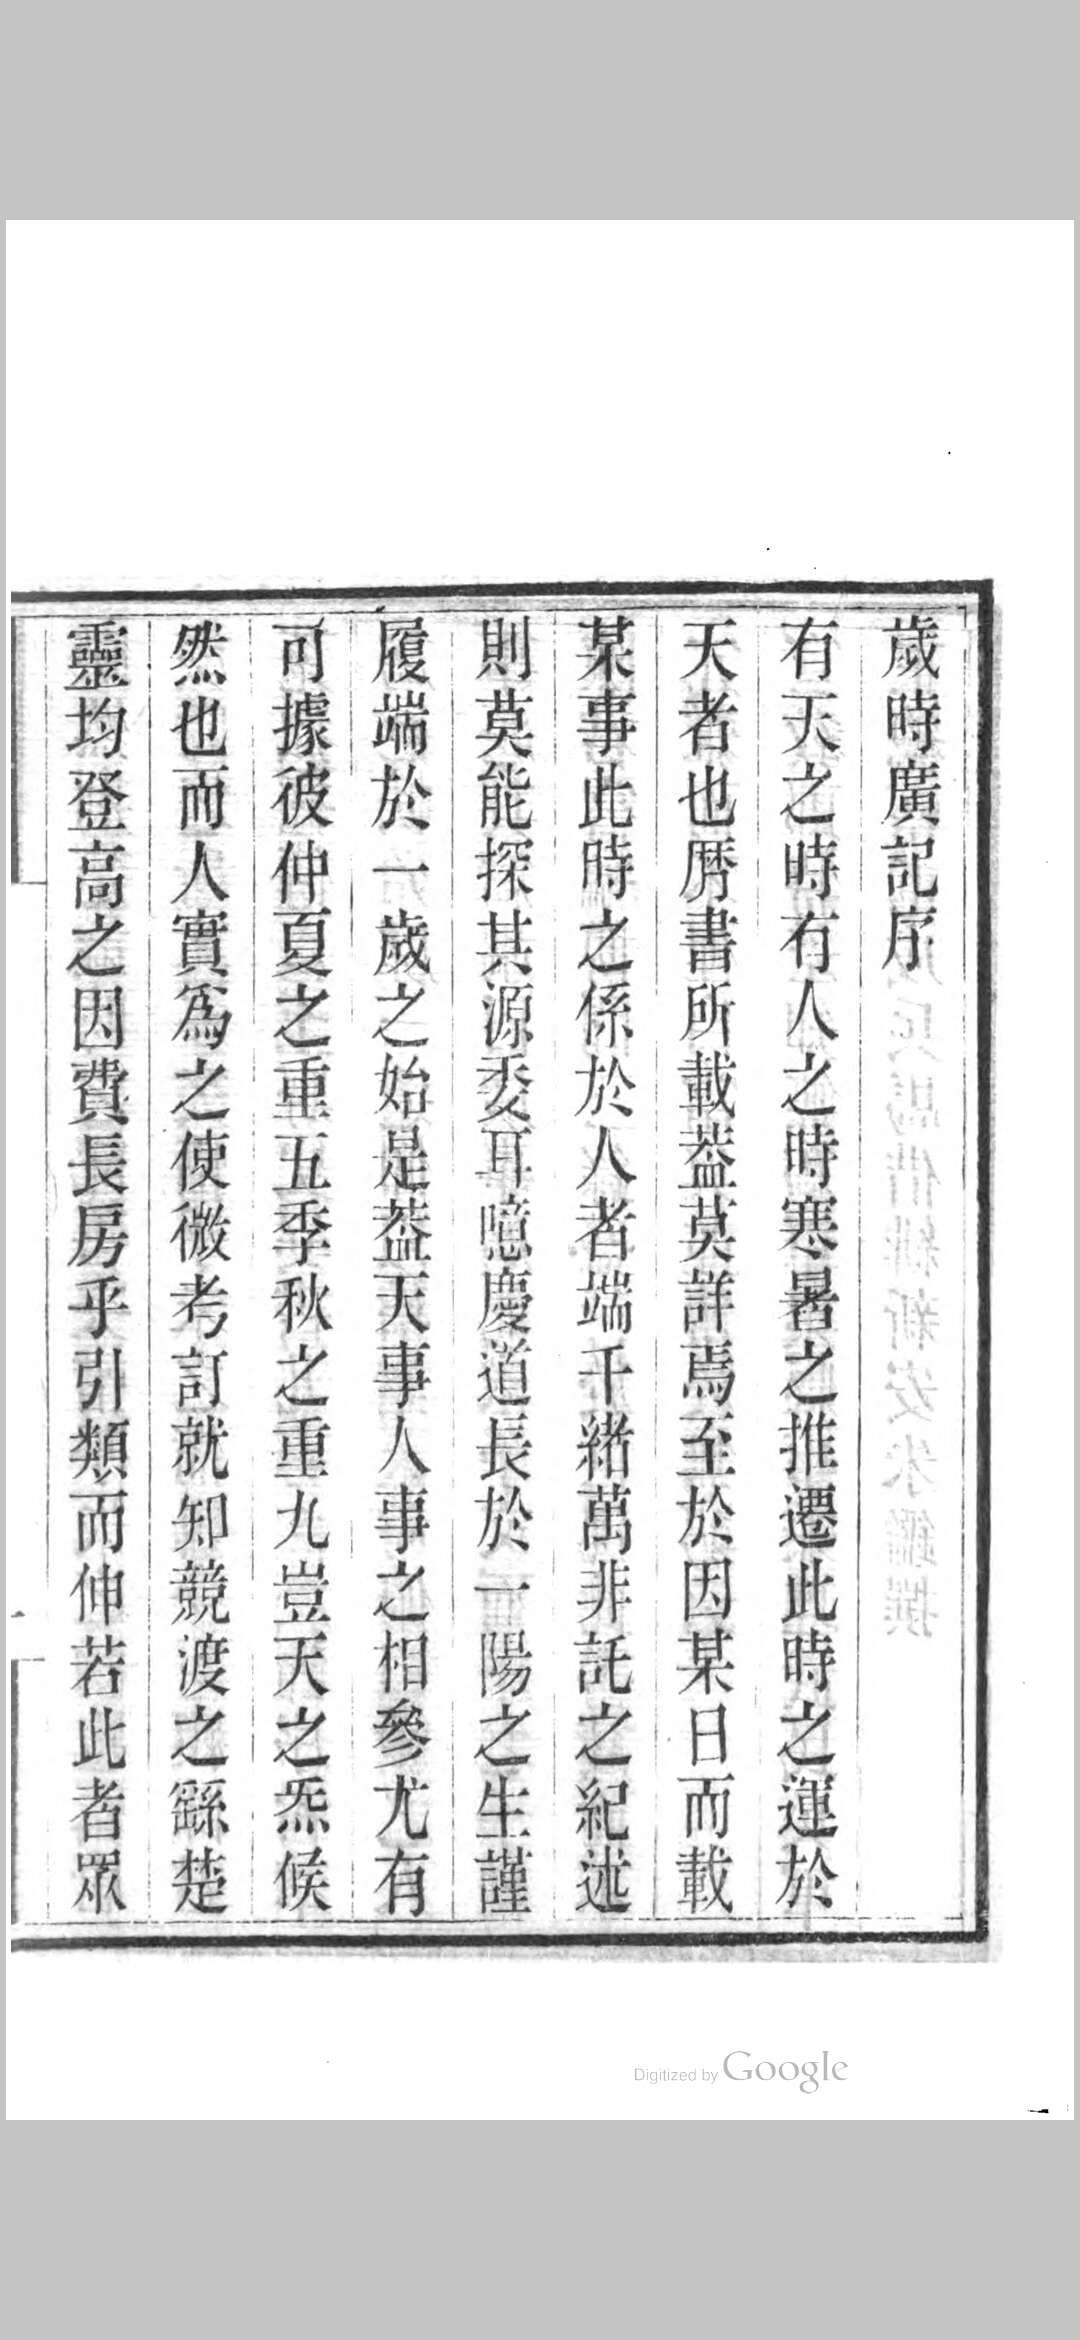 歲時廣記序
有天之時有人之時寒暑之推遷此時之運於
天者也厤書所載葢莫詳焉至於因某日而載
某事此時之係於人者端千緒萬非託之紀述
則莫能探其源委耳噫慶道長於一陽之生謹
履端於一歲之始是葢天事人事之相參尤有
可據彼仲夏之重五季秋之重九豈天之炁候
然也而人實爲之使微考訂就知競渡之繇楚
靈均登高之因費長房乎引類而伸若此者眾
Digitized by Google